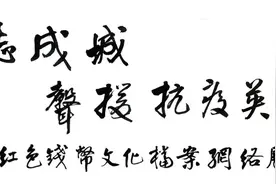 志成城
聲援抗疫英
红色錢幣文化檔案網络展